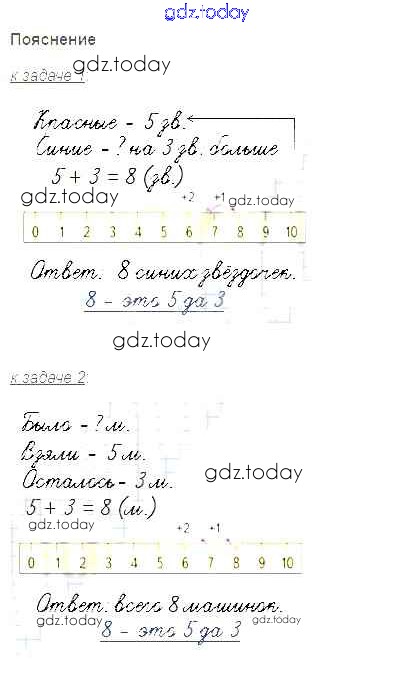 gdz.today
Пояснение
gdz.today
к задаче 1:
Красные - 5 зв.
Синие - ? на 3 зв. больше
5 + 3 = 8 (зв.)
gdz.today
+2 +1 gdz.today
0 1 2 3 4 5 6 7 8 9 10
Ответ: 8 синих звёздочек.
8 - это 5 да 3
gdz.today
к задаче 2:
Было - ? м.
Взяли - 5 м.
gdz.today
Осталось - 3 м.
5 + 3 = 8 (м.)
gdz.today
+2 +1
0 1 2 3 4 5 6 7 8 9 10
Ответ: всего 8 машинок.
gdz.today gdz.today
8 - это 5 да 3